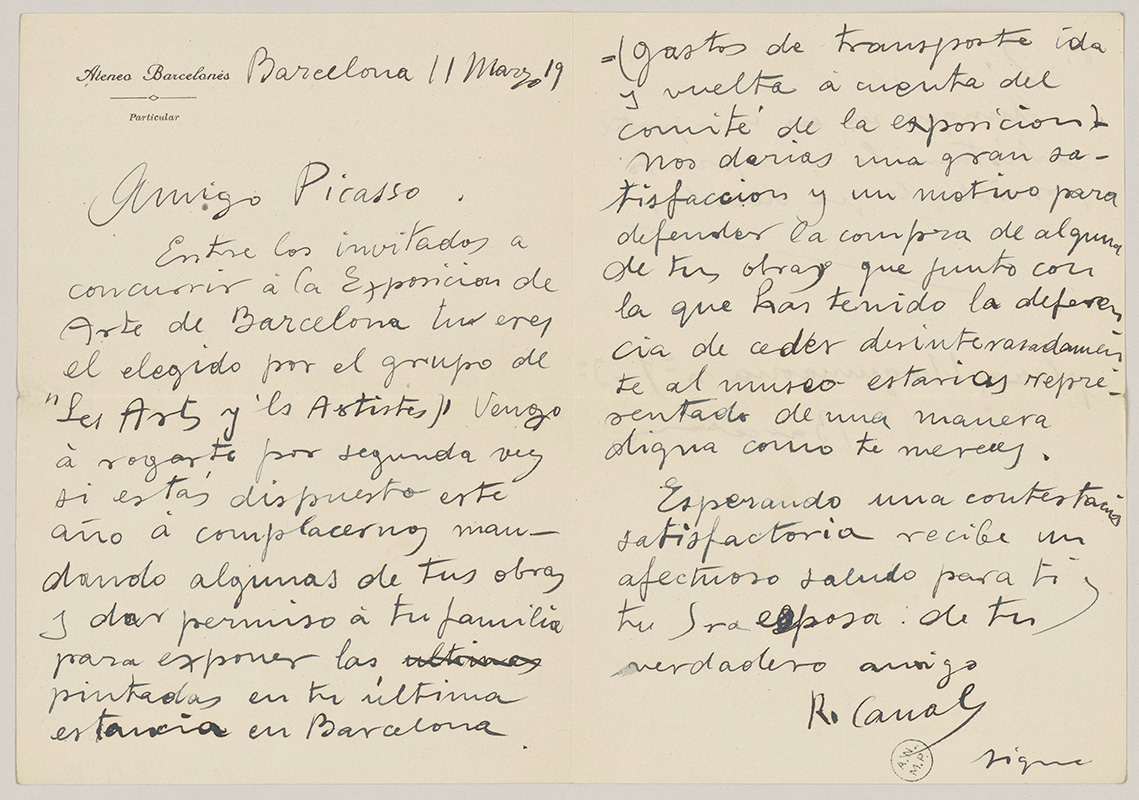 Ateneo Barcelonés
Particular
Barcelona 11 Marzo 19
Amigo Picasso.
Entre los invitados a
concurrir á la Exposicion de
Arte de Barcelona tu eres
el elegido por el grupo de
"Les Arts y 'ls Artistes" Vengo
á rogarte por segunda vez
si estás dispuesto este
año á complacernos man-
dando algunas de tus obras
y dar permiso á tu familia
para exponer las ultimas
pintadas en tu última
estancia en Barcelona.
=(gastos de transporte ida
y vuelta á cuenta del
comité de la exposicion)-
Nos darias una gran sa-
tisfaccion y un motivo para
defender la compra de alguna
de tus obras que junto con
la que has tenido la deferen
cia de ceder desinterasadamen
te al museo estarias repre-
sentado de una manera
digna como te mereces.
Esperando una contestacion
satisfactoria recibe un
afectuoso saludo para ti y
tu Sra esposa: de tu
verdadero amigo
R. Canals
sigue
A.N.
M.P.